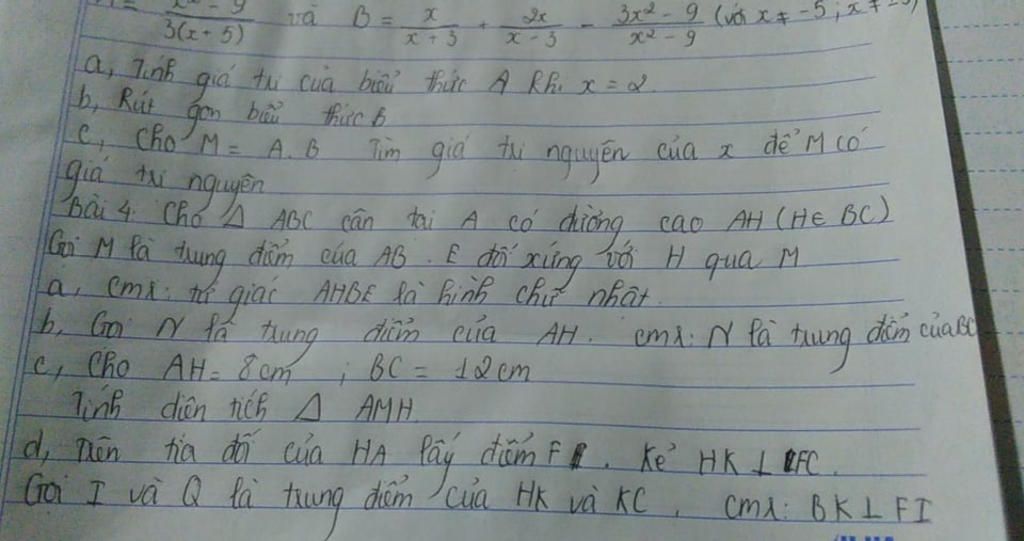 x² - 9 / 3(x + 5) và B = x / x + 3 + 2x / x - 3 - 3x² - 9 / x² - 9 (với x ≠ -5 ; x ≠
a, Tính giá trị của biểu thức A khi x = 2.
b, Rút gọn biểu thức B
c, Cho M = A.B Tìm giá trị nguyên của x để M có
giá trị nguyên
Bài 4. Cho Δ ABC cân tại A có đường cao AH (H ∈ BC)
Gọi M là trung điểm của AB. E đối xứng với H qua M
a, cmr: tứ giác AHBE là hình chữ nhật.
b, Gọi N là trung điểm của AH. cmr: N là trung điểm của BC
c, Cho AH = 8cm ; BC = 12cm
Tính diện tích Δ AMH
d, Trên tia đối của HA lấy điểm F. Kẻ HK ⊥ FC.
Gọi I và Q là trung điểm của HK và KC. cmr: BK ⊥ FI